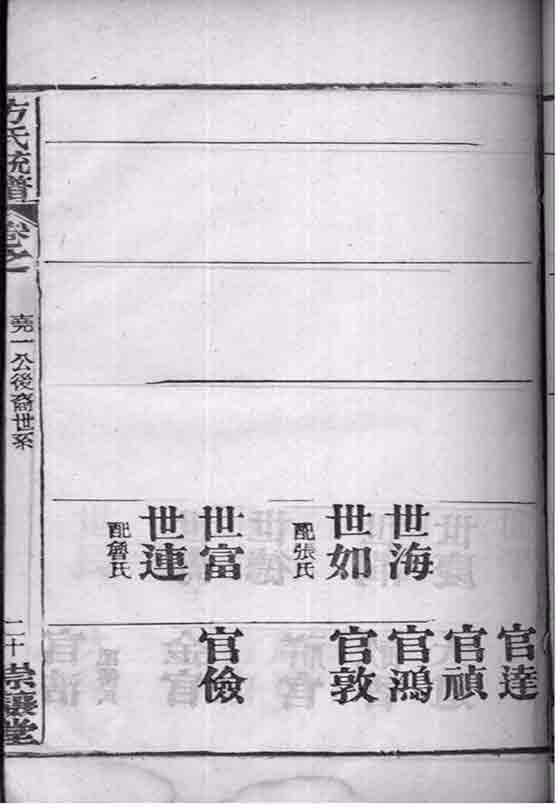 官達
官禎
世海
官鴻
世如
官敦
配張氏
世富
官儉
世連
配魯氏
方氏統譜
卷之
堯一公後裔世系
二十
崇讓堂